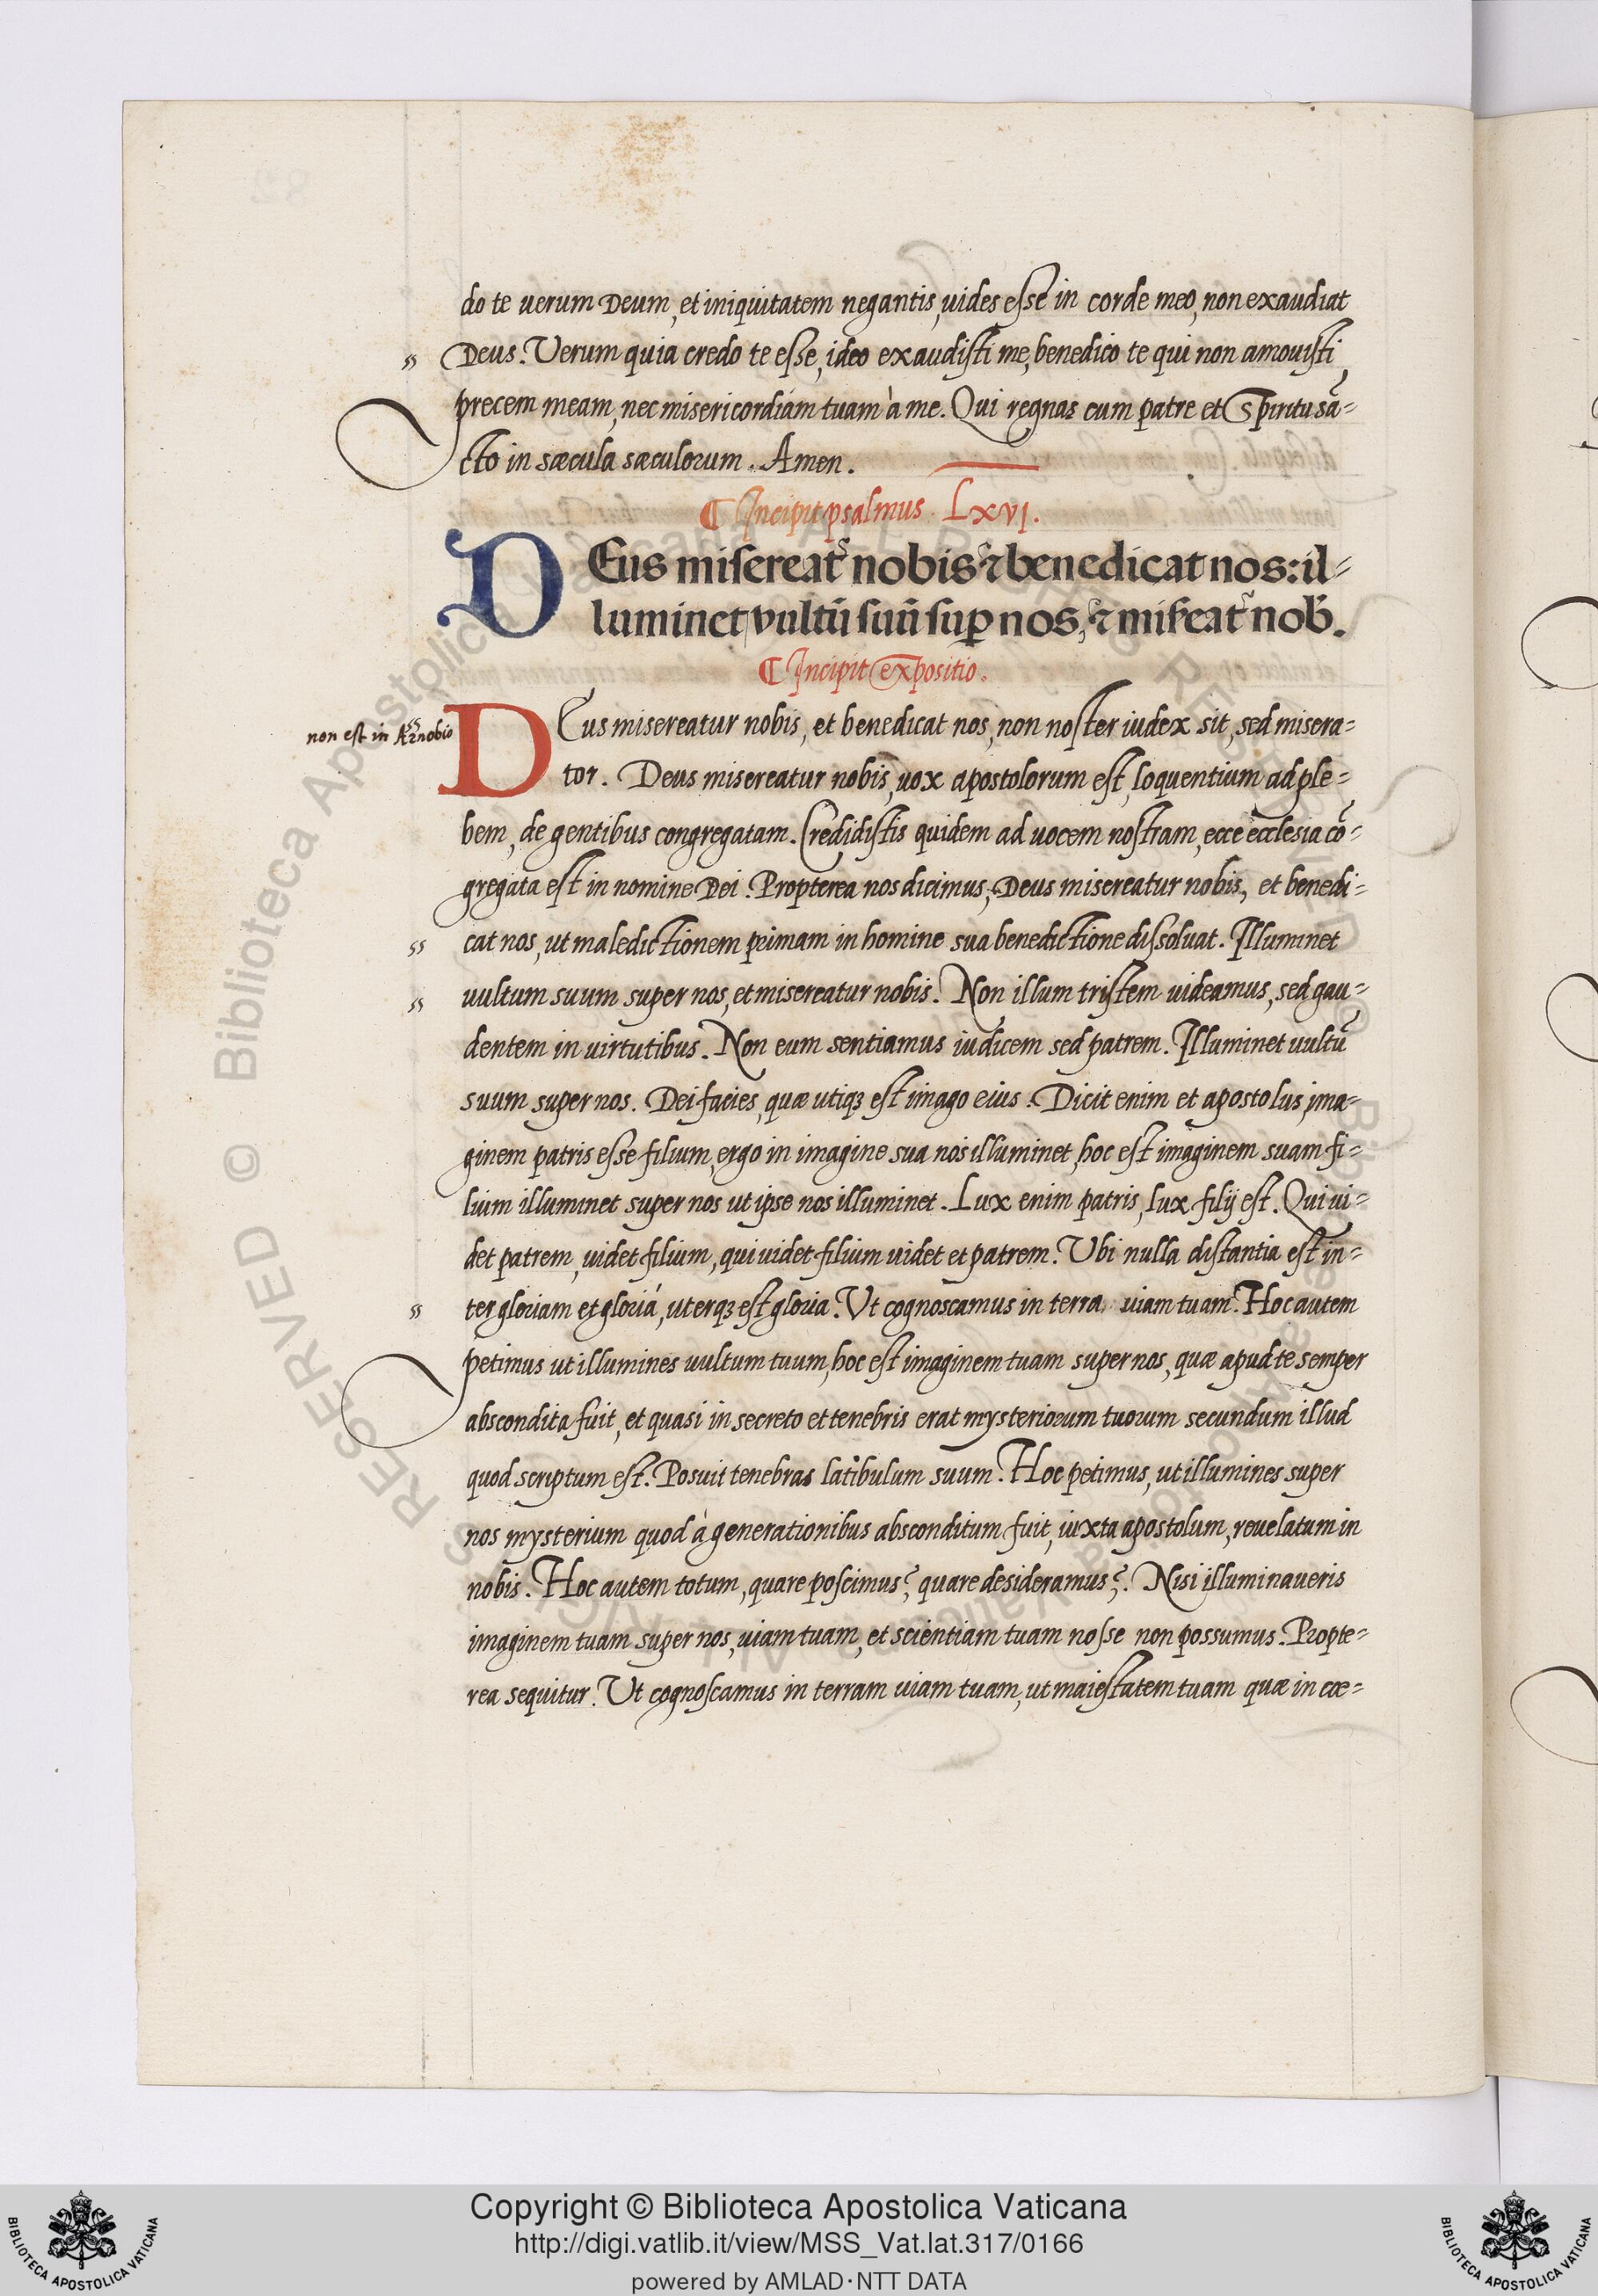 do te uerum Deum, et iniquitatem negantis, uides esse in corde meo, non exaudiat
" Deus. Verum quia credo te esse, ideo exaudisti me, benedico te qui non amouisti
precem meam, nec misericordiam tuam à me. Qui regnas cum patre et Spiritu sã=
cto in sæcula sæculorum. Amen.
¶ Incipit psalmus LXVI.
DEus misereat᷑ nobis ⁊ benedicat nos: il=
luminet vultũ suũ suꝑ nos, ⁊ mis̃eat᷑ nob̃.
¶ Incipit expositio.
non est in Arnobio
DEus misereatur nobis, et benedicat nos, non noster iudex sit, sed misera=
tor. Deus misereatur nobis, uox apostolorum est, loquentium ad ple=
bem, de gentibus congregatam. Credidistis quidem ad uocem nostram, ecce ecclesia cõ=
gregata est in nomine Dei. Propterea nos dicimus, Deus misereatur nobis, et benedi=
" cat nos, ut maledictionem primam in homine sua benedictione dissoluat. Illuminet
" uultum suum super nos, et misereatur nobis. Non illum tristem uideamus, sed gau=
dentem in uirtutibus. Non eum sentiamus iudicem sed patrem. Illuminet uultũ
suum super nos. Dei facies, quæ utiqꝫ est imago eius. Dicit enim et apostolus, ima=
ginem patris esse filium, ergo in imagine sua nos illuminet, hoc est imaginem suam fi=
lium illuminet super nos ut ipse nos illuminet. Lux enim patris, lux filij est. Qui ui=
det patrem, uidet filium, qui uidet filium uidet et patrem. Vbi nulla distantia est in=
" ter gloriam et gloriã, uterqꝫ est gloria. Vt cognoscamus in terra uiam tuam. Hoc autem
petimus ut illumines uultum tuum, hoc est imaginem tuam super nos, quæ apud te semper
abscondita fuit, et quasi in secreto et tenebris erat mysteriorum tuorum secundum illud
quod scriptum est. Posuit tenebras latibulum suum. Hoc petimus, ut illumines super
nos mysterium quod à generationibus absconditum fuit, iuxta apostolum, reuelatum in
nobis. Hoc autem totum, quare poscimus? quare desideramus?. Nisi illuminaueris
imaginem tuam super nos, uiam tuam, et scientiam tuam nosse non possumus. Propte=
rea sequitur. Vt cognoscamus in terram uiam tuam, ut maiestatem tuam quæ in cœ=
© Biblioteca Apostolica Vaticana ALL RIGHTS RESERVED
Copyright © Biblioteca Apostolica Vaticana
http://digi.vatlib.it/view/MSS_Vat.lat.317/0166
powered by AMLAD·NTT DATA
BIBLIOTECA APOSTOLICA VATICANA
BIBLIOTECA APOSTOLICA VATICANA